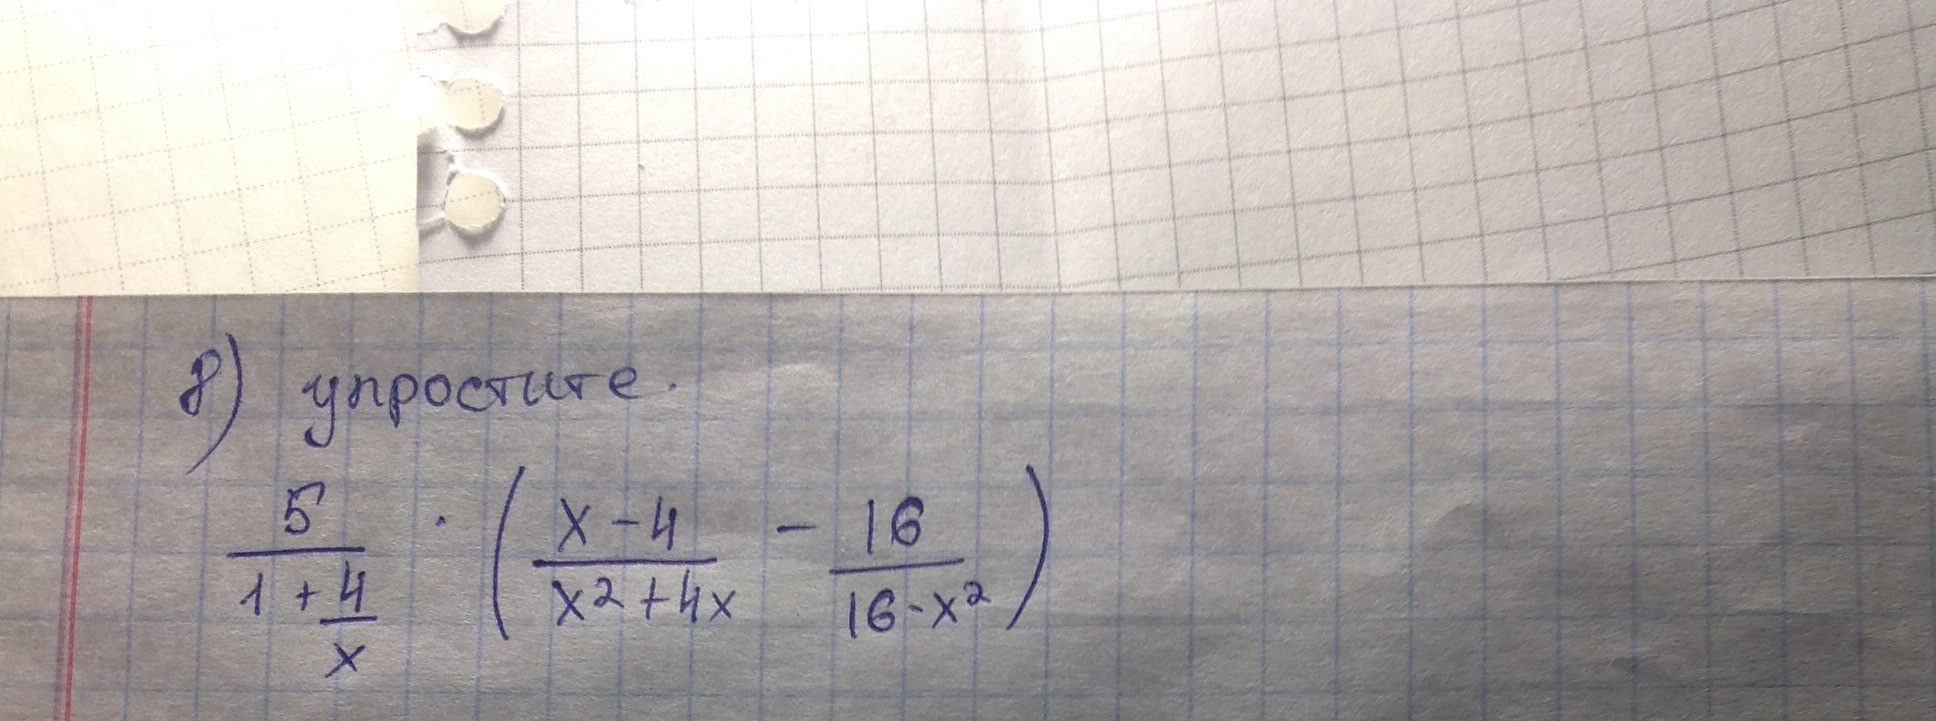 8) упростите.
5/(1 + 4/x) · ((x - 4)/(x² + 4x) - 16/(16 - x²))